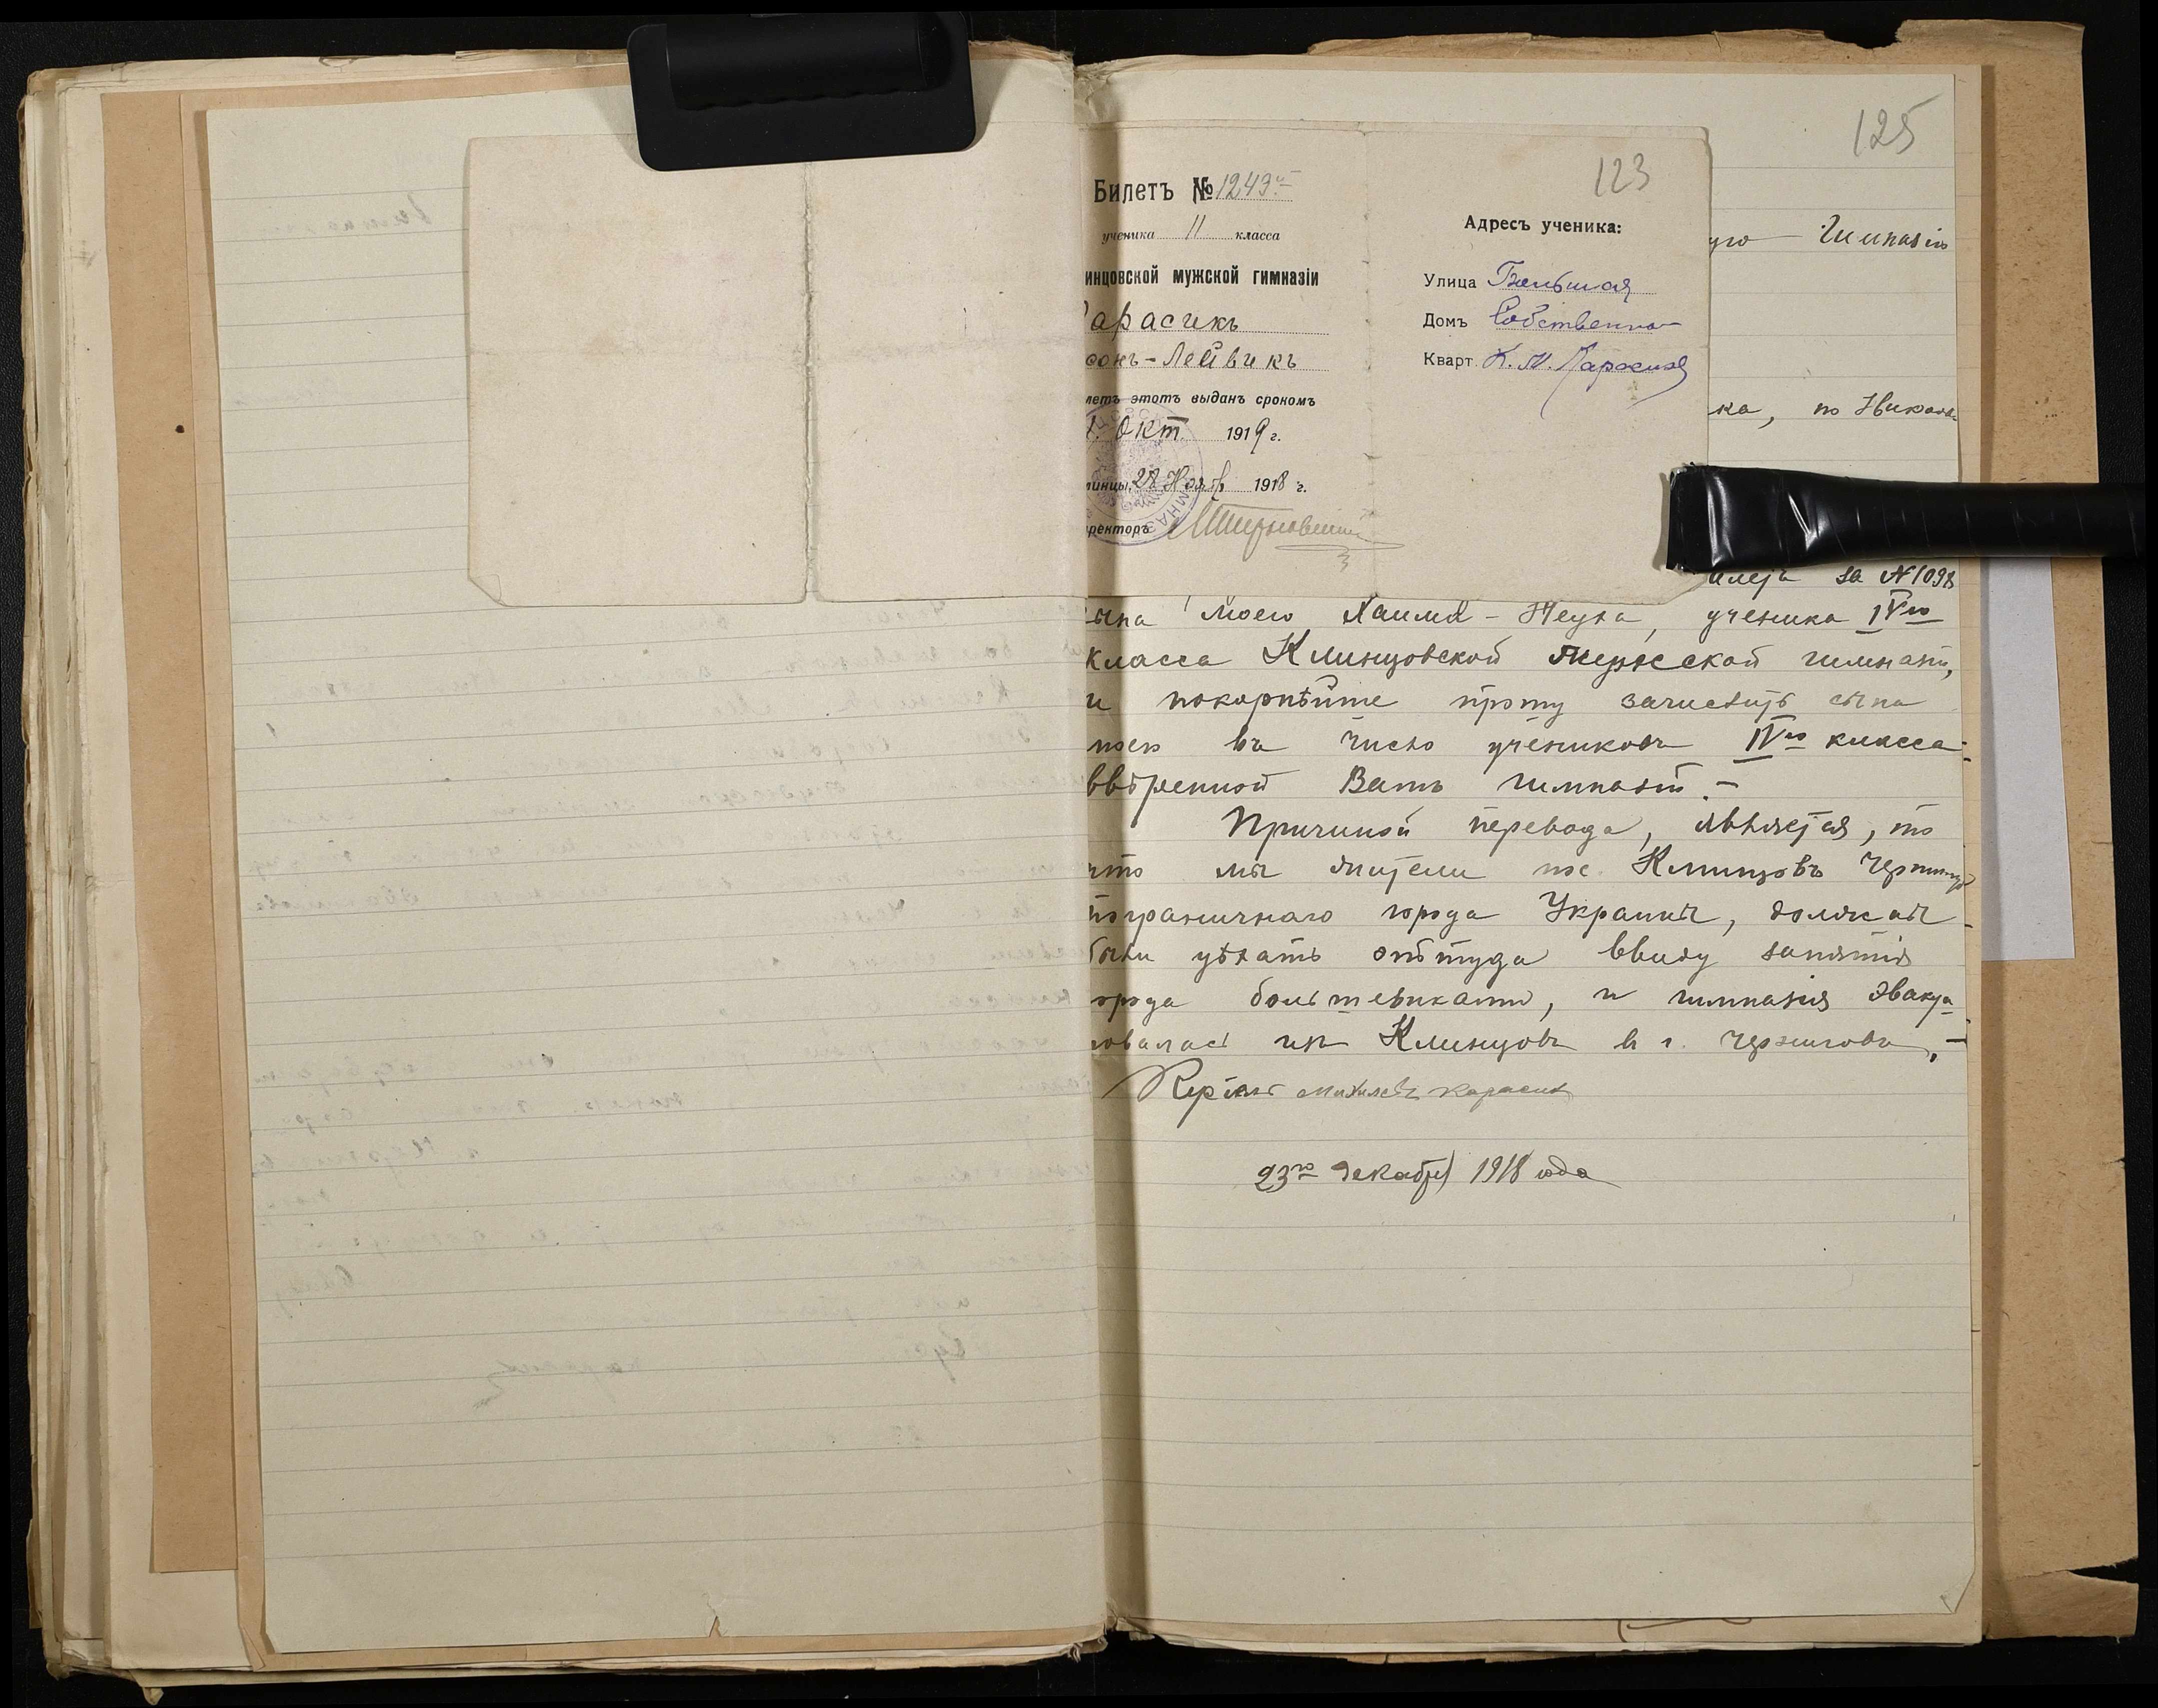 125
123
Билетъ № 1243
ученика II класса
инцовской мужской гимназіи
арасикъ
сонъ-Лейвикъ
летъ этотъ выданъ срокомъ
1. Окт. 1919 г.
инцы, 28 Нояб 1918 г.
ректоръ
Адресъ ученика:
Улица Большая
Домъ Собственно
Кварт. К. М. Карасика
ую Гимназію
ка, по Никола
за № 1098
сына моего Хаима-Неуха, ученика IV го
класса Клинцовской Мужской гимназіи,
и покорнѣйше прошу зачислить сына
моего въ число учениковъ IV го класса
ввѣренной Вамъ гимназіи. —
Причиной перевода, является, то
что мы жители пос. Клинцовъ Черниг
пограничнаго города Украины, должны
были уѣхать оттуда ввиду занятія
орода большевиками, и гимназія эвакуи
овалась изъ Клинцовъ въ г. Черниговъ. —
Карасикъ
23 го декабря 1918 года